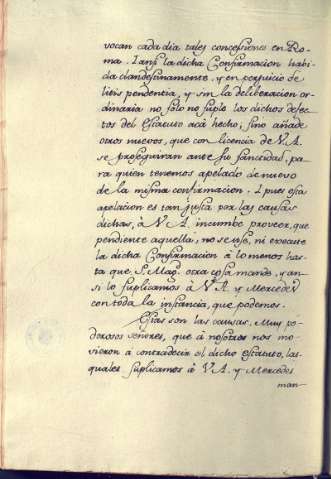 vocan cada dia tales concesiones en Ro-
ma. I ansi la dicha Confirmacion habi-
da clandestinamente, y en perjuicio de
litis pendentia, y sin la deliberacion or-
dinaria no solo no suple los dichos defec-
tos del Estatuto acá hecho; sino añade
otros nuevos, que con licencia de V.A.
se proseguiran ante su Santidad, pa-
ra quien tenemos apelado de nuevo
de la misma confirmacion. I pues esta
apelacion es tan justa por las causas
dichas, à V.A. incumbe proveer, que
pendiente aquella, no se use, ni execute
la dicha Confirmacion à lo menos has-
ta que S. Mag. otra cosa mande, y an-
si lo suplicamos à V.A. y Mercedes
con toda la instancia, que podemos.
Estas son las causas, Muy po-
derosos señores, que à nosotros nos mo-
vieron a contradecir el dicho estatuto, las
quales suplicamos à V.A. y Mercedes
man-